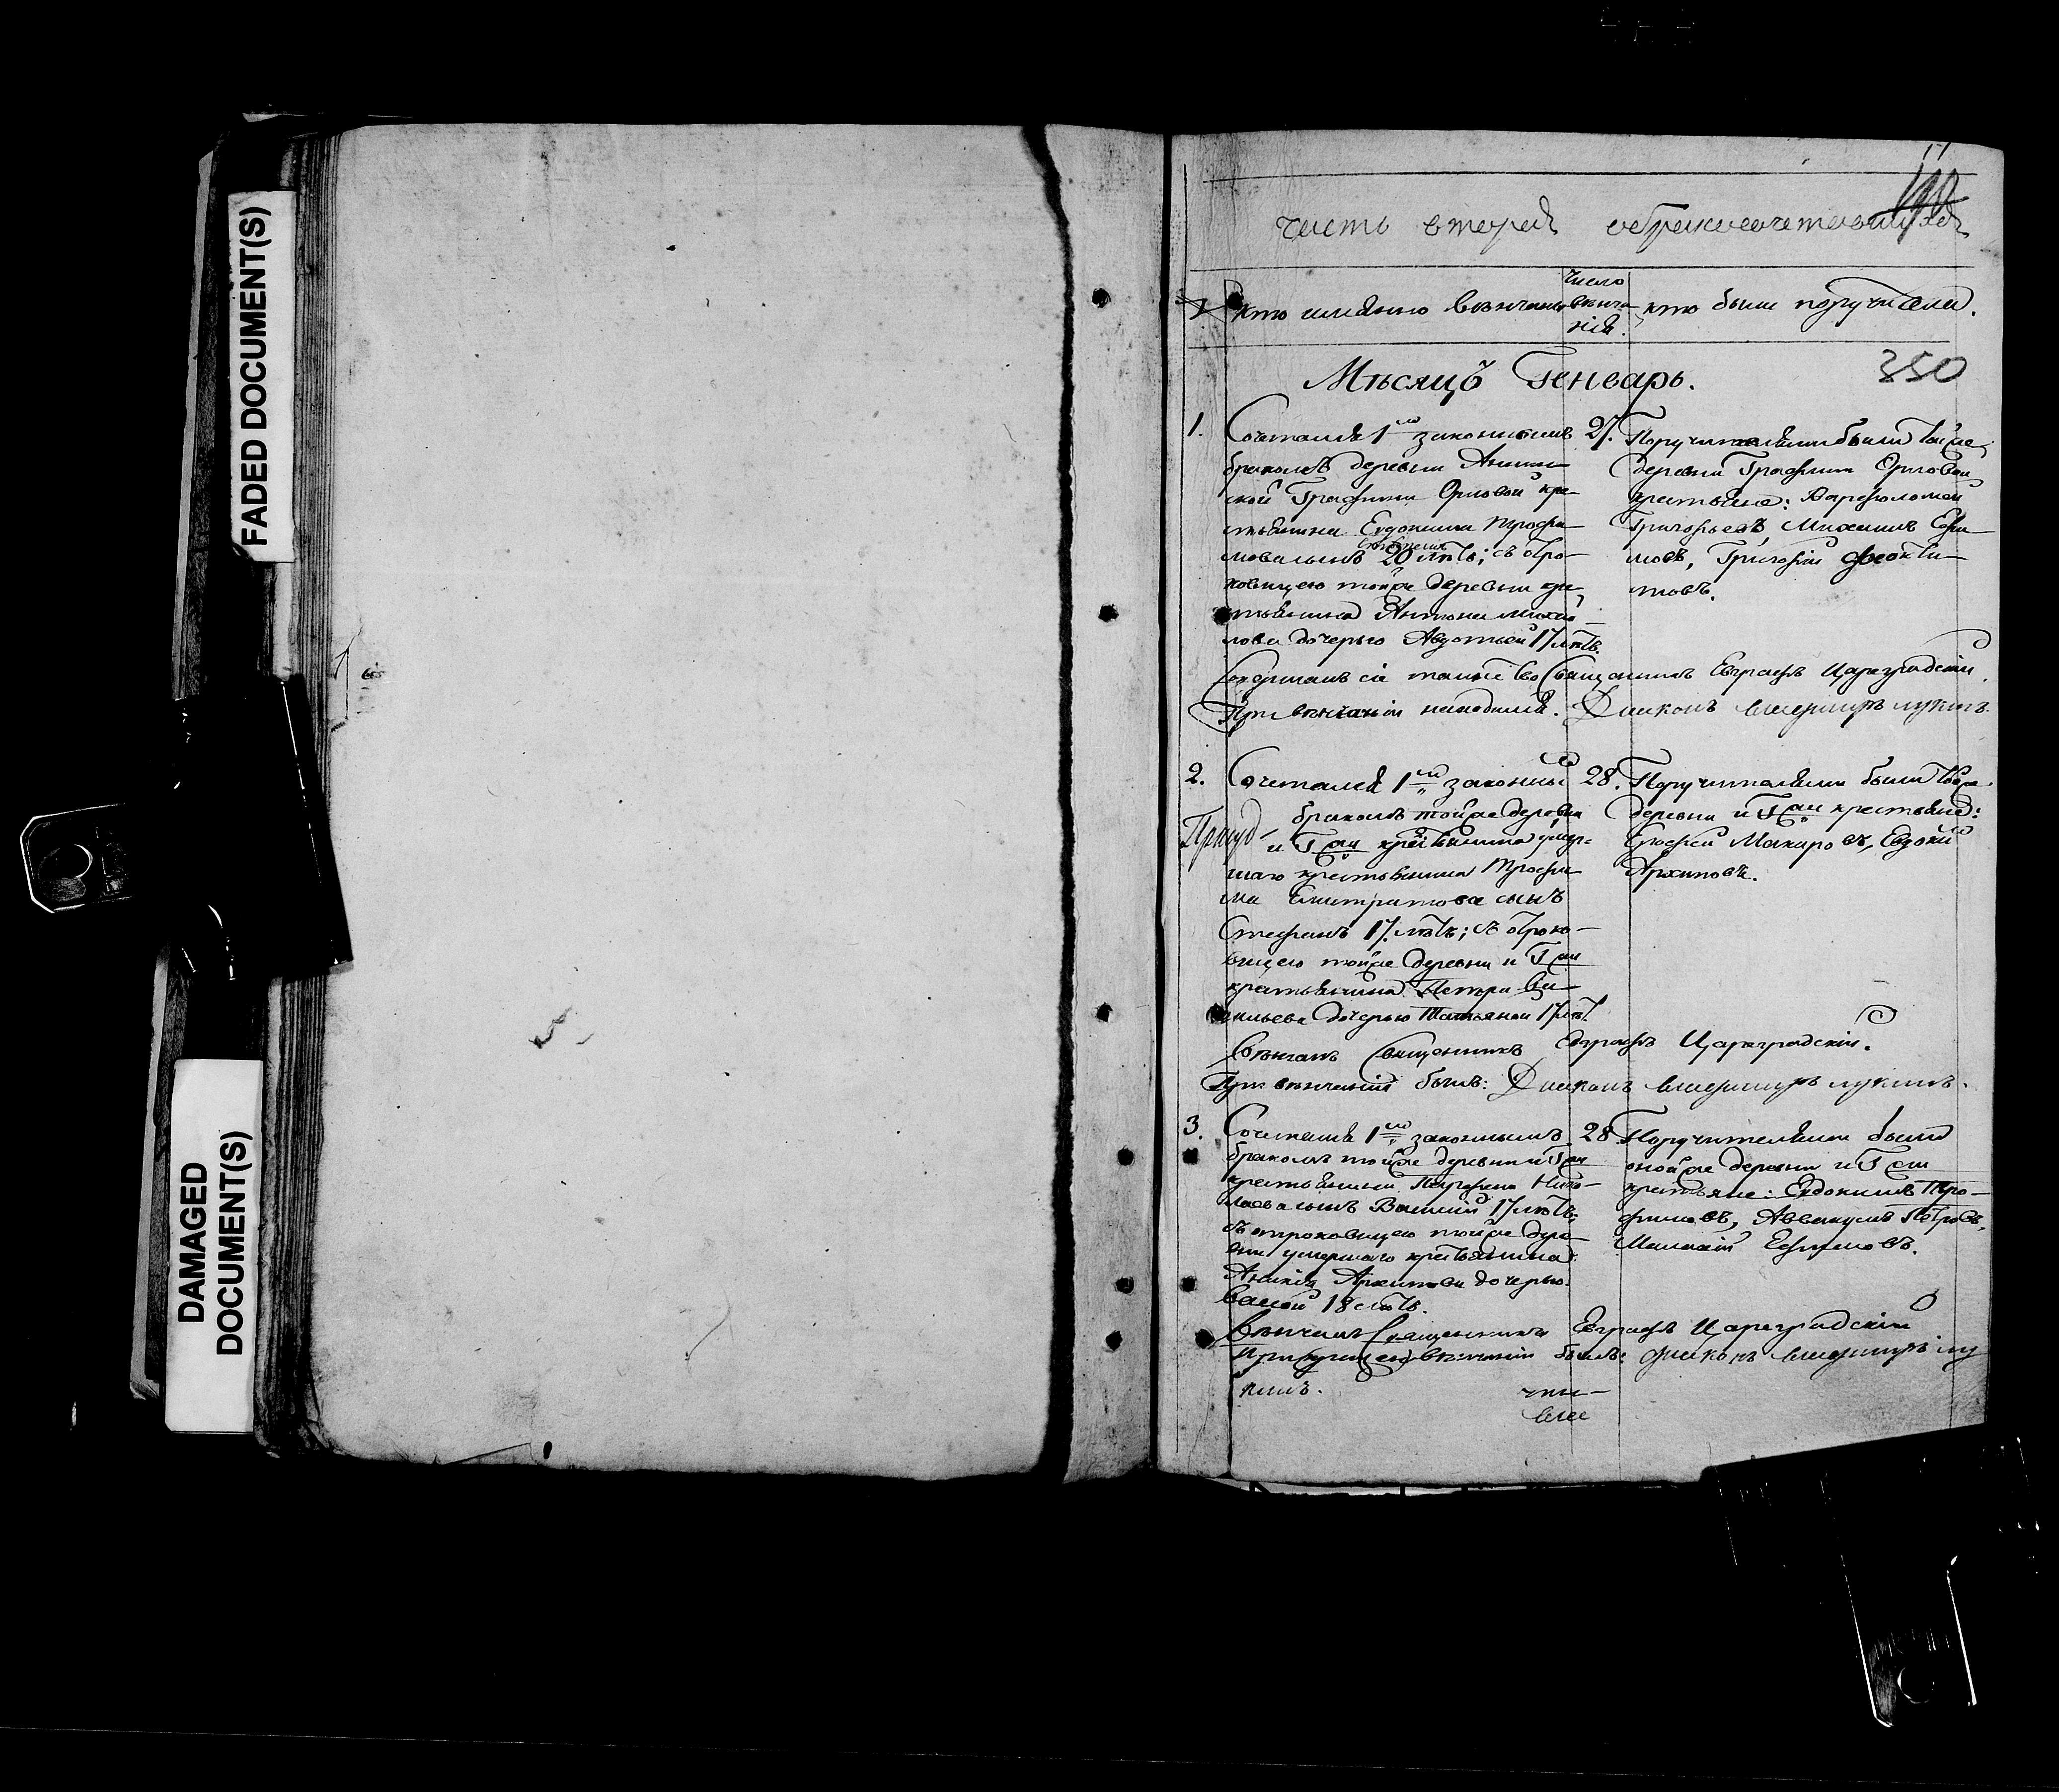 FADED DOCUMENT(S)
DAMAGED
DOCUMENT(S)
часть вторая обракосочетавшихся
кто имянно венчаны
число
венча
нія.
кто были поручители.
Мѣсяцъ Генварь.
350
1.
Сочетался 1м законнымъ
бракомъ деревни
Графини Орловой кре
стьянина Евдокима Трофи
20 лѣтъ; с отро
ковицею тойже деревни кре
стьянина Антона Михай
лова дочерью Авдотьей 17 лѣтъ.
27.
Поручителями были тойже
деревни Графини Орловой
крестьяне: Варфоломей
Григорьевъ Михаилъ Ефи
мовъ, Григорій Феокти
стовъ.
Священникъ Евграфъ Цареградскій.
При венчаніи находился. Диаконъ Владимиръ Лукинъ.
2.
Сочетался 1м законны
бракомъ тойже деревни
и Г.жи крестьянина умер
шаго крестьянина Трофи
ма сынъ
Стефанъ 17. лѣтъ; съ отроко
вицею тойже деревни и Г.жи
крестьянина Петра Ва
сильева дочерью Татьяной 17 лѣт.
28.
Поручителями были тойже
деревни и Г.жи крестьяне:
Ерофей Макаровъ, Евдоки
Архиповъ.
Венчалъ Священникъ Евграфъ Цареградскій.
При венчаніи былъ: Диаконъ Владимиръ Лукинъ.
3.
Сочетался 1м законнымъ
бракомъ тойже деревни и Г.жи
крестьянина Парфена Нико
лаева сынъ Василій 17 лѣтъ,
съ отроковицею тойже дере
вни умершаго крестьянина
Архипова дочерью
18 лѣтъ.
28
Поручителями были
онойже деревни и Г.жи
крестьяне: Евдокимъ Тро
фимовъ, Аввакумъ Петровъ,
Ефимовъ.
Венчалъ Священникъ Евграфъ Цареградскій
При венчаніи былъ: диаконъ Владимиръ Лу
кинъ.